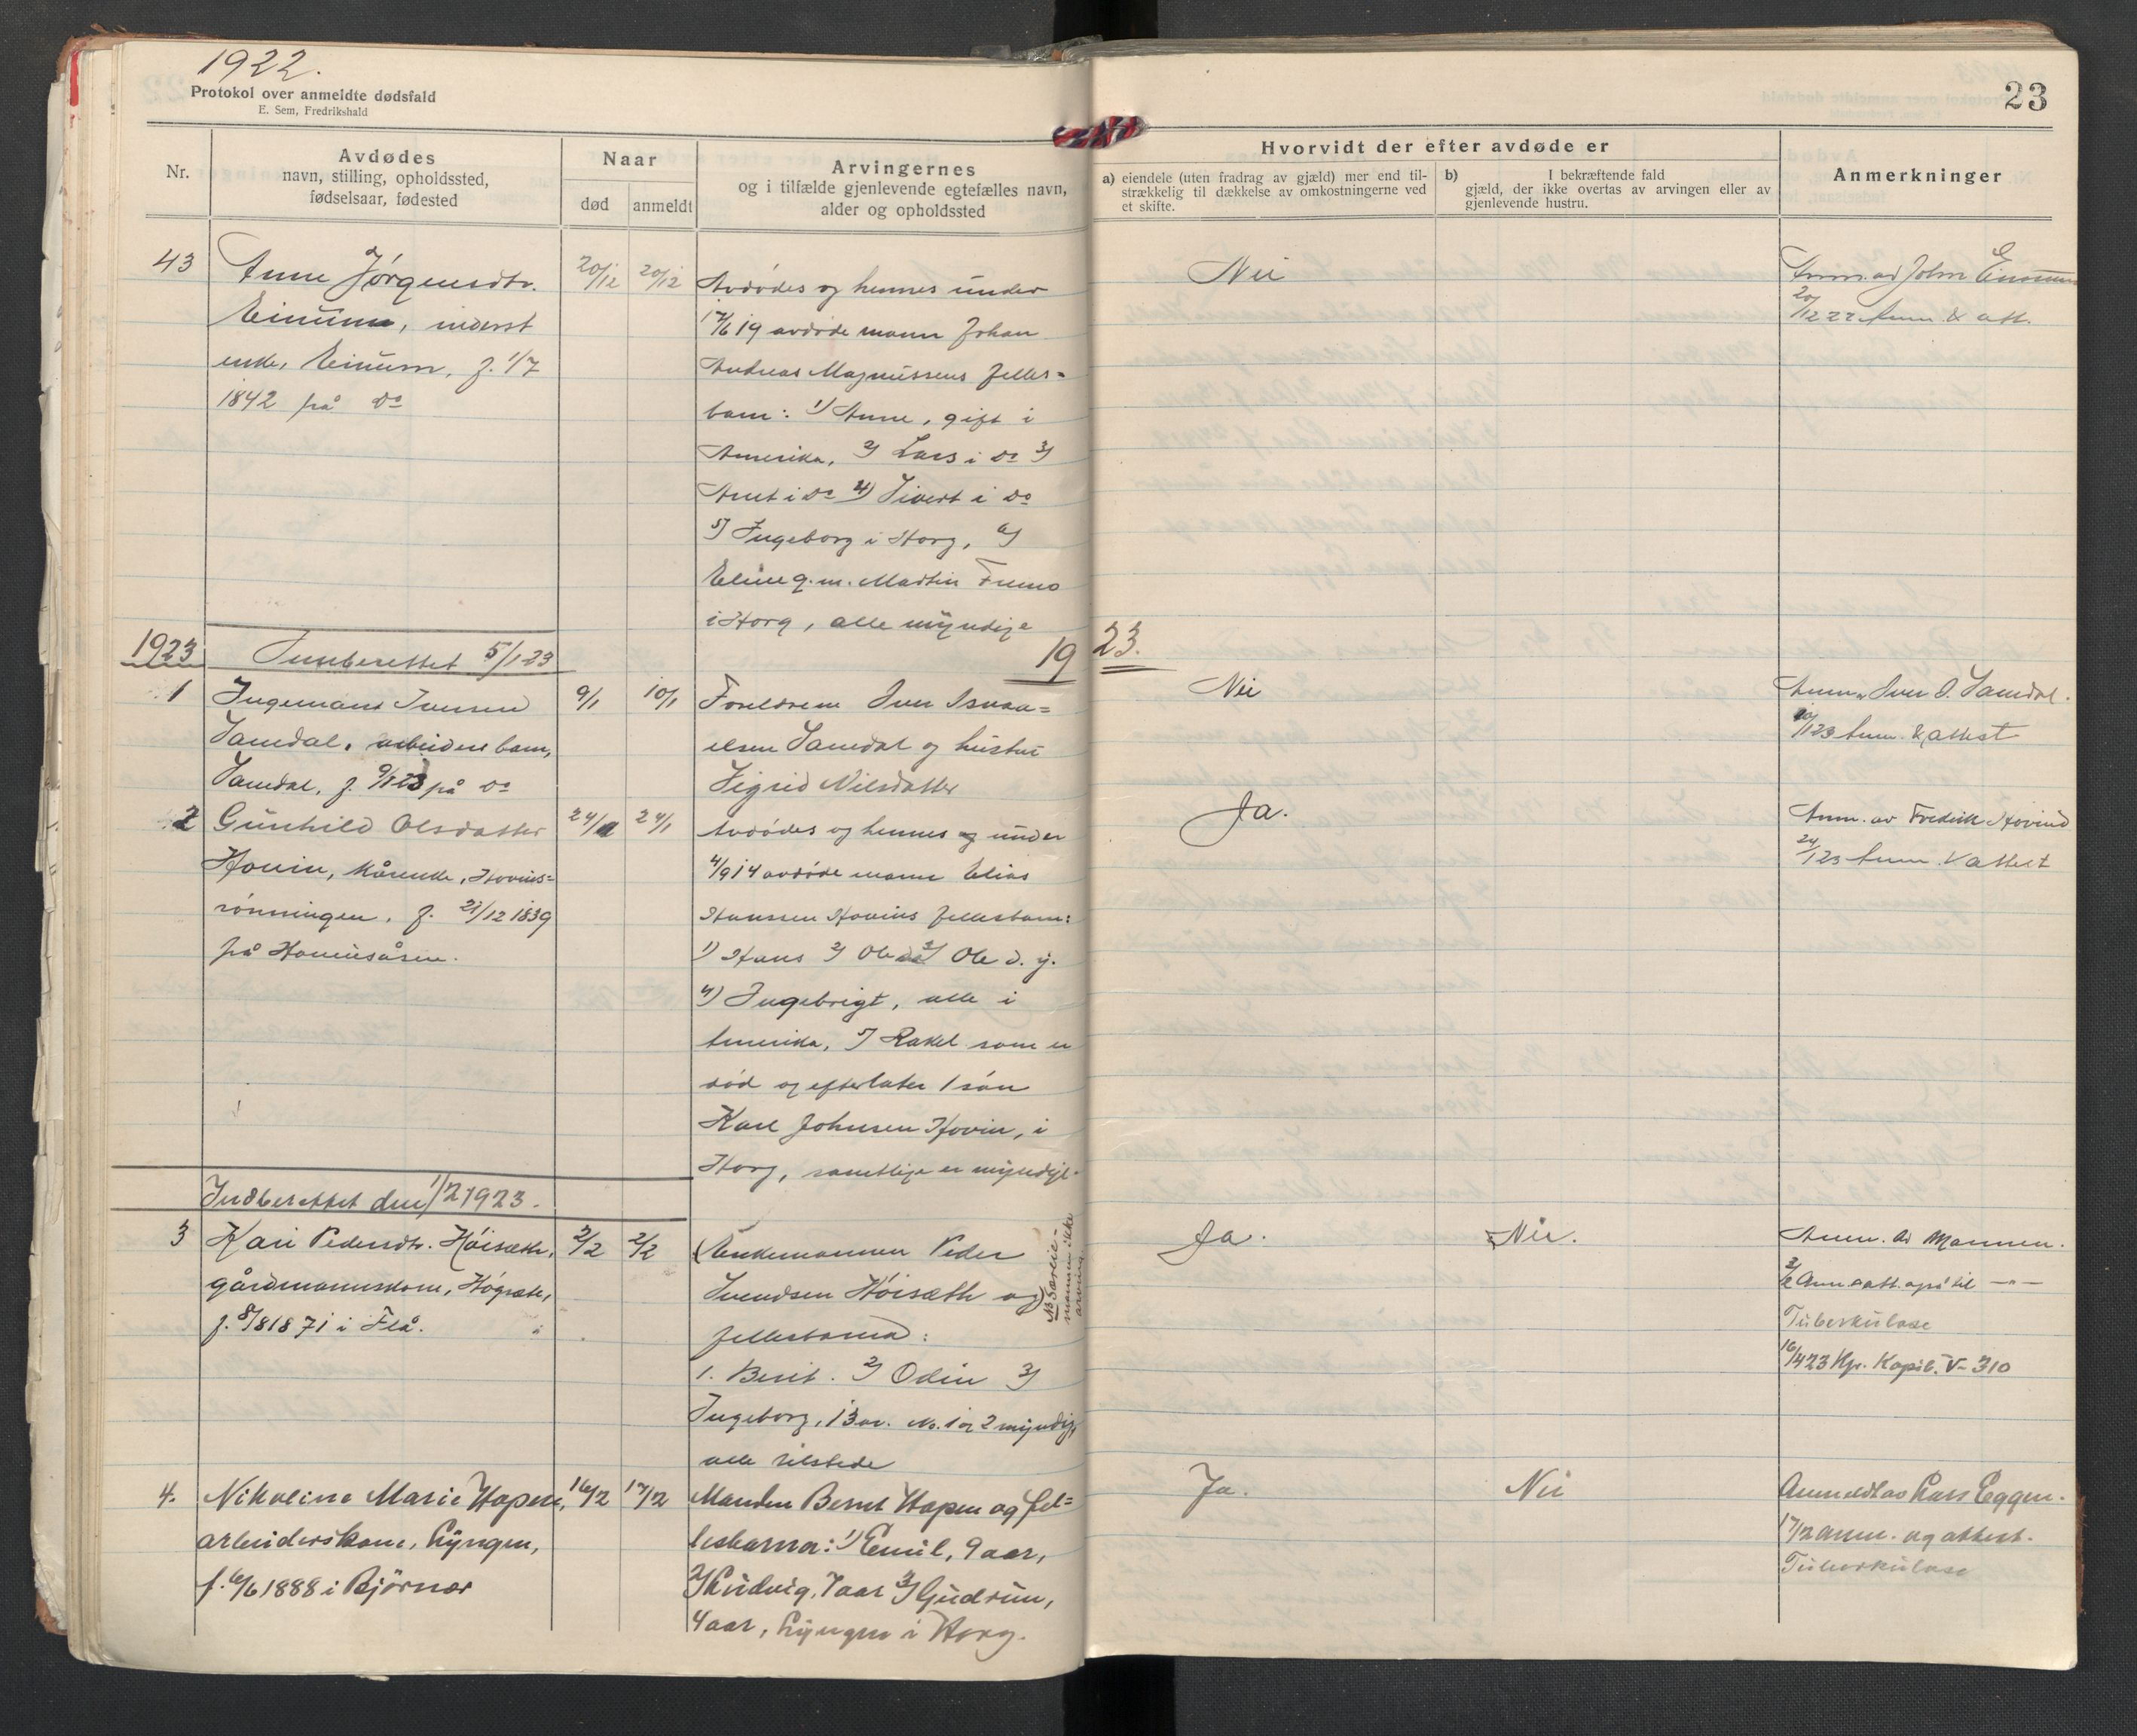 1922.
Protokol over anmeldte dødsfald
E. Sem, Fredrikshald
23
Nr.
Avdødes
navn, stilling, opholdssted,
fødselsaar, fødested
Naar
død
anmeldt
Arvingernes
og i tilfælde gjenlevende egtefælles navn,
alder og opholdssted
Hvorvidt der efter avdøde er
a) eiendele (uten fradrag av gjæld) mer end til-
strækkelig til dækkelse av omkostningerne ved
et skifte.
b) I bekræftende fald
gjæld, der ikke overtas av arvingen eller av
gjenlevende hustru.
Anmerkninger
43
Anne Jørgensdtr.
Einum, inderst
enke, Einum, f. 1/7
1842 på do
20/12
20/12
Avdødes og hennes under
19 avdøde mann Johan
Andreas Magnussens felles=
barn: 1) Anne, gift i
Amerika, 2) Lars i do 3)
Arnt i do 4) Sivert i do
5) Ingeborg i Horg, 6)
Eline g.m. Martin Fremo
i Horg, alle myndige
Nei
Anm. av John
20/12 22 Anm. & att.
1923
Innberettet 5/1-23
1923.
1
Ingemann Iversen
Samdal, arbeiders barn,
Samdal, f. 9/1 23 på do
9/1
10/1
Foreldrene Iver
Samdal og hustru
Sigrid Nilsdatter
Nei
Anm. Iver Samdal.
10/1 23 Anm. & attest
2
Gunhild Olsdatter
Hovin, kårenke, Hovins=
rønningen, f. 21/12 1839
på Hovinsåsen.
24/1
24/1
Avdødes og hennes under
4/9 14 avdøde mann Elias
Hanssen Hovins fellesbarn:
1) Hans 2) Ole 3) Ole d. y.
4) Ingebrigt, alle i
Amerika, 5) Rakel som er
død og efterlater 1 søn
Karl Johnsen Hovin, i
Horg, samtlige er myndige.
Ja.
Anm. av Fredrik Hovind
24/1 23 Anm. & attest
Indberettet den 1/2 1923.
3
Kari Pedersdtr. Höisæth,
gårdmannskone, Högsæte,
f. 8/8 1871 i Flå.
2/2
2/2
Enkemannen Peder
Svendsen Höisæth og
fellesbarna:
1. Berit. 2) Odin 3)
Ingeborg, 13 år. No. 1 og 2 myndig,
alle tilstede
NB
mannen ikke
arving
Ja.
Nei.
Anm. av Mannen.
2/2 Anm & att. også til —"—
Tuberkulose
16/4 23 Hr. Kapsl. V-310
4.
Nikoline Marie Hopen,
arbeiderskone, Lyngen,
f. 6/6 1888 i Bjørnør
16/2
17/2
Manden Bernt Hopen og fel=
lesbarna: 1) Emil, 9 aar,
2) Ludvig, 7 aar 3) Gudrun,
4 aar, Lyngen i Horg.
Ja.
Nei
Anmeldt av Lars Eggen.
17/2 anm. og attest.
Tuberkulose